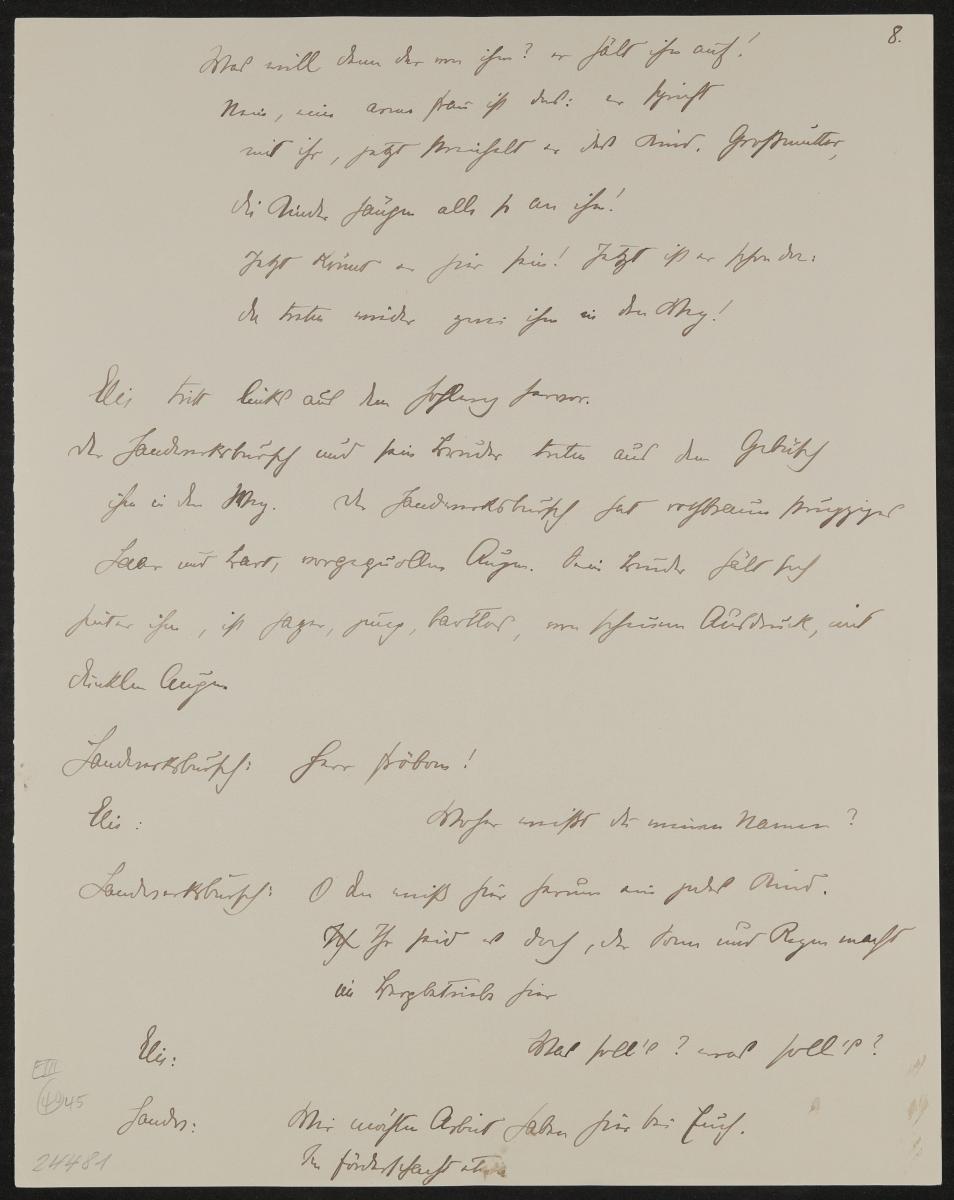 8.
Was will denn der von ihm? er hält ihn auf!
Nein, eine arme Frau ist das: er spricht
mit ihr, jetzt streichelt er das Kind. Großmutter,
die Kinder hängen alle so an ihm!
Jetzt kom̄t er hier herein! Jetzt ist er schon da:
da treten wieder zwei ihm in den Weg!
Elis tritt links aus dem Hohlweg hervor.
Der Handwerksbursch und sein Bruder treten aus dem Gebüsch
ihm in den Weg. Der Handwerksbursch hat rothbraun struppiges
Haar und Bart, vorgequollene Augen. Sein Bruder hält sich
hinter ihm, ist hager, jung, bartlos, von scheuem Ausdruck, mit
dunklen Augen
Handwerksbursch: Herr Fröbom!
Elis: Woher weißt du meinen Namen?
Handwerksbursch: O den weiß hier herum ein jedes Kind.
Ihr seid es doch, der Sonn und Regen macht
im Bergbetriebe hier
Elis: Was soll's? was soll's?
Handw: Wir möchten Arbeit haben hier bei Euch.
Im Förderschacht
EIII
(49) 45
24481